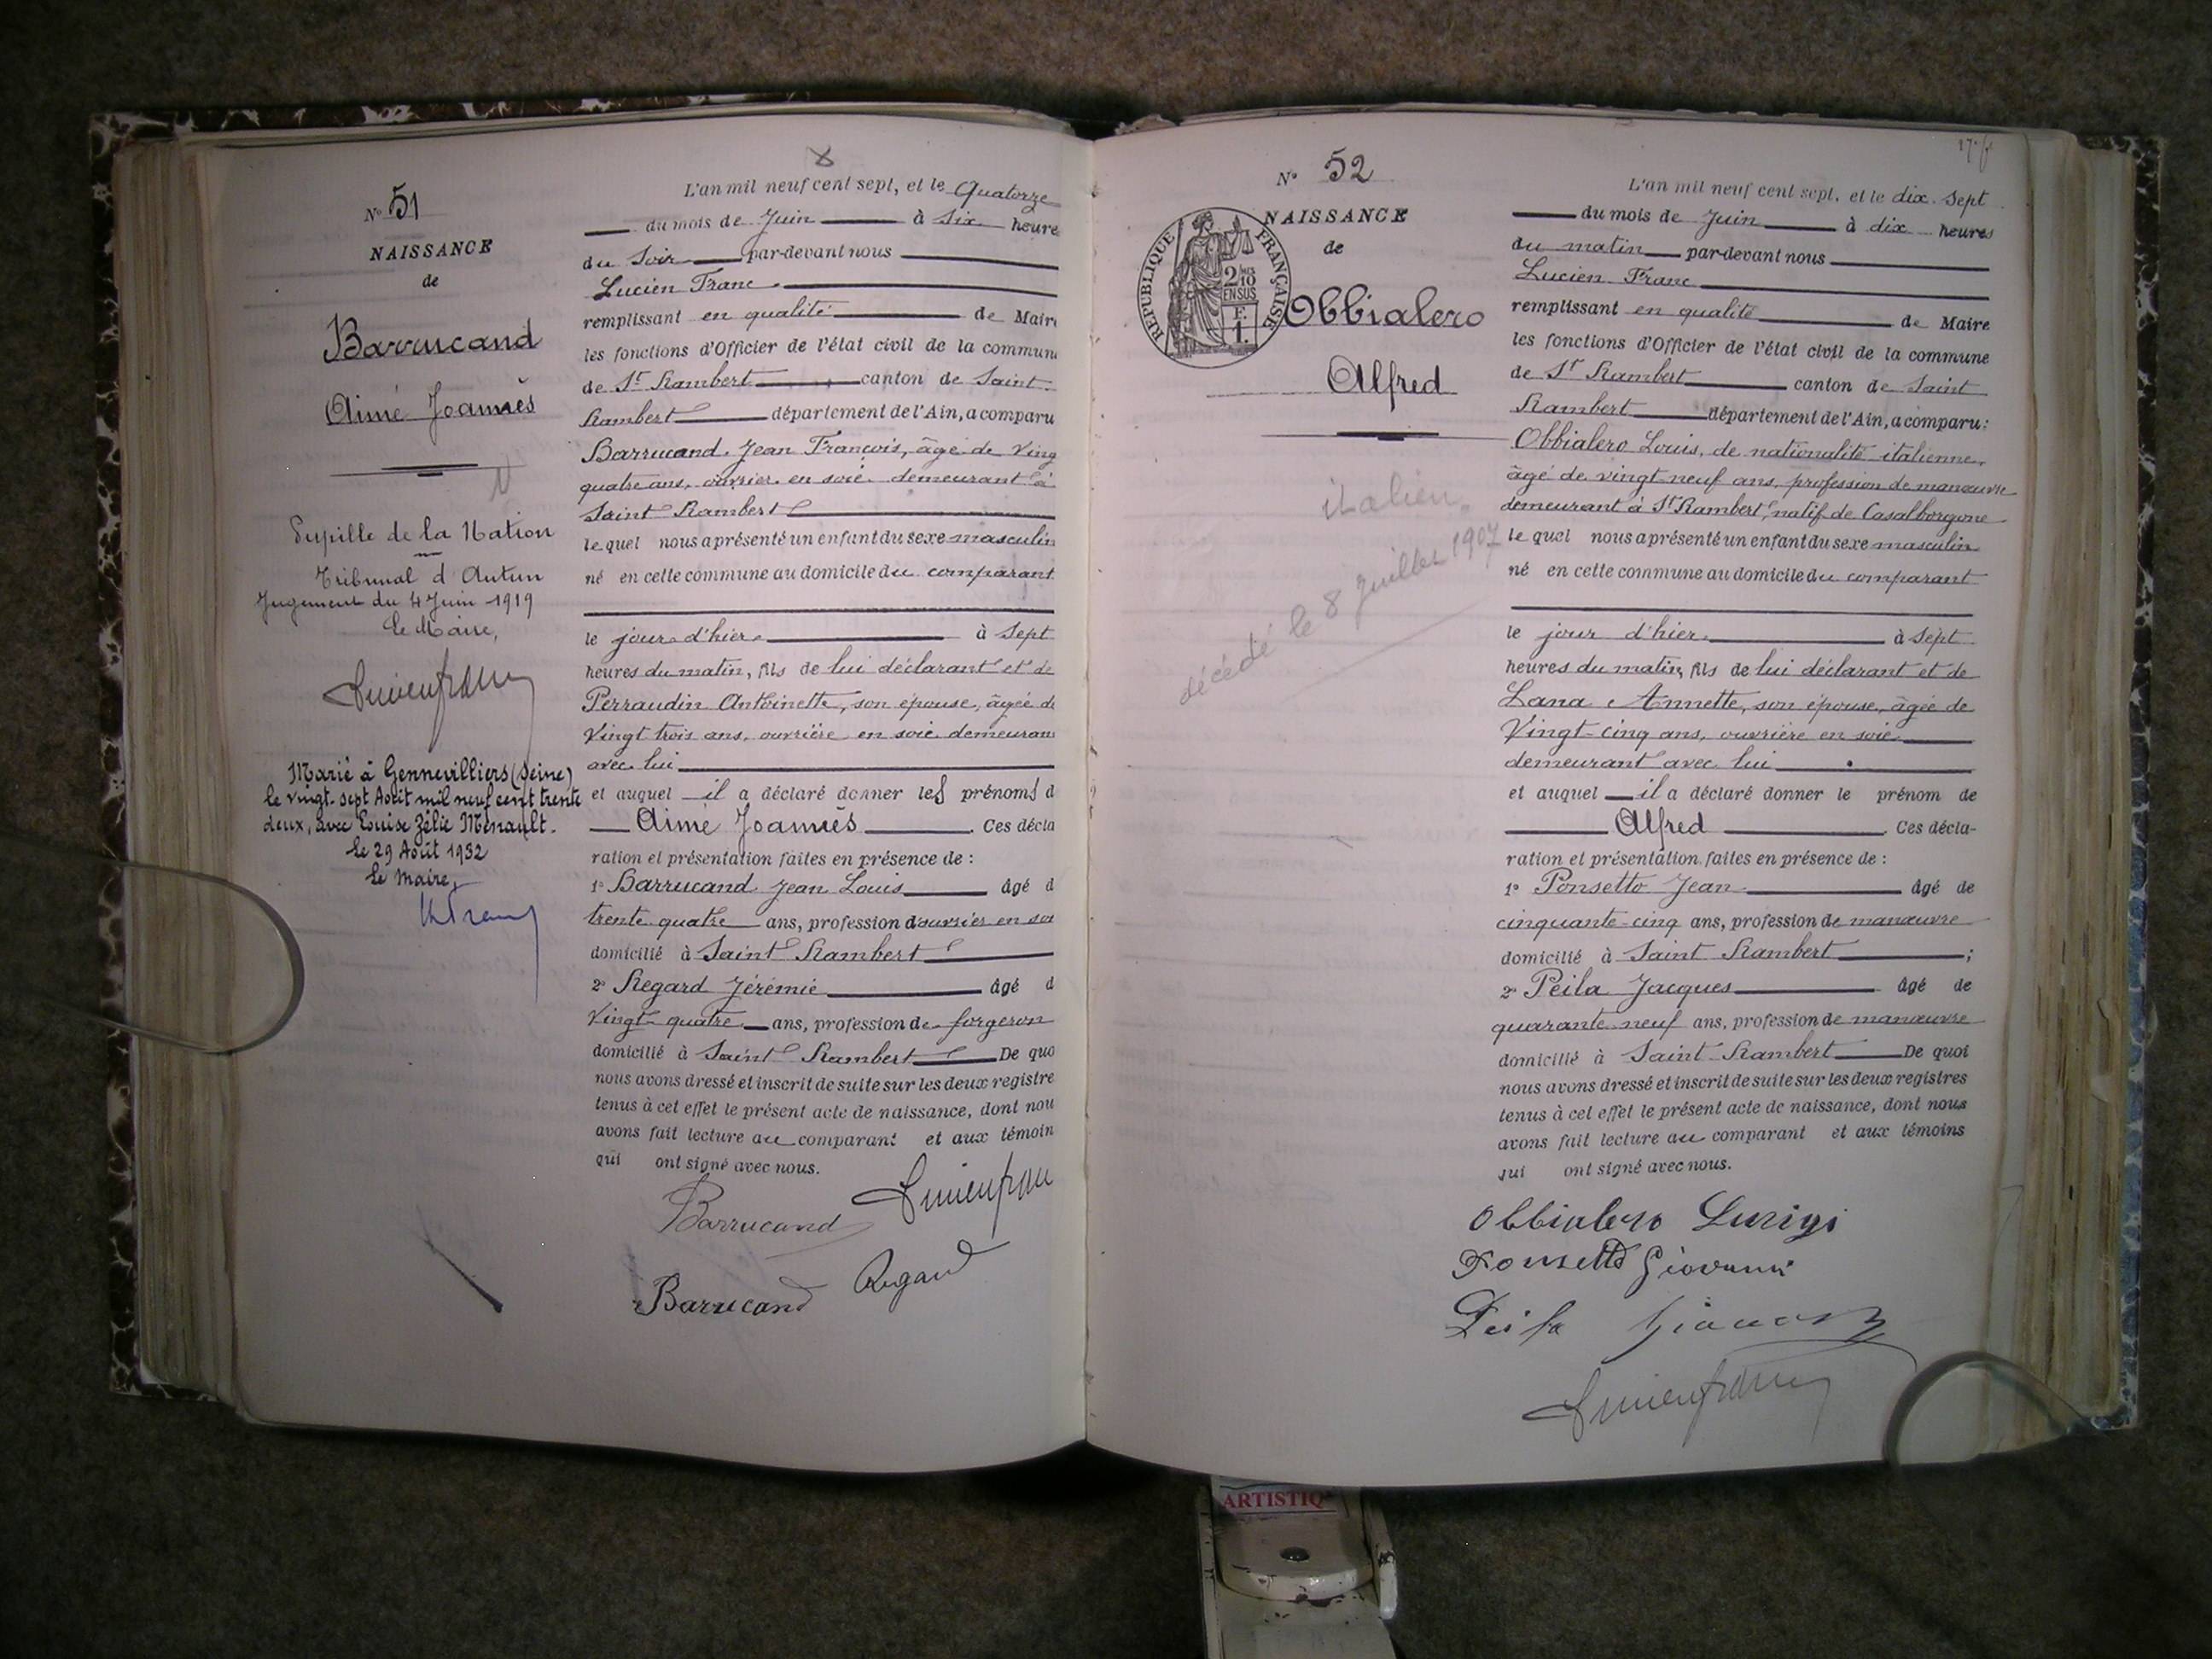 N° 51
NAISSANCE
de
Barrucand
Aimé Joannès
Pupille de la Nation
Tribunal d'Autun
Jugement du 4 Juin 1919
Le Maire,
Lucien Franc
Marié à Gennevilliers (Seine)
le vingt-sept Août mil neuf cent trente
deux, avec Louise Zélie Ménault.
Le 29 Août 1932
Le Maire,
L'an mil neuf cent sept, et le Quatorze
du mois de Juin à Six heure
du Soir par-devant nous
Lucien Franc
remplissant en qualité de Maire
les fonctions d'Officier de l'état civil de la commune
de St Rambert canton de Saint
Rambert département de l'Ain, a comparu
Barrucand Jean François, âgé de Ving
quatre ans, ouvrier en soie demeurant à
Saint Rambert
le quel nous a présenté un enfant du sexe masculin
né en cette commune au domicile du comparant
le jour d'hier à Sept
heures du matin, fils de lui déclarant et de
Perraudin Antoinette, son épouse, âgée d
Vingt trois ans, ouvrière en soie demeuran
avec lui
et auquel il a déclaré donner les prénoms d
Aimé Joannès. Ces décla
ration et présentation faites en présence de :
1° Barrucand Jean Louis âgé d
trente quatre ans, profession d'ouvrier en soi
domicilié à Saint Rambert
2° Regard Jérémie âgé d
Vingt-quatre ans, profession de forgeron
domicilié à Saint Rambert De quo
nous avons dressé et inscrit de suite sur les deux registre
tenus à cet effet le présent acte de naissance, dont nou
avons fait lecture au comparant et aux témoin
qui ont signé avec nous.
Barrucand Lucien Franc
Barrucand Regard
17 f
N° 52
NAISSANCE
de
REPUBLIQUE FRANÇAISE
2/10
EN SUS
F.
1.
Obbialero
Alfred
italien
décédé le 8 Juillet 1907
L'an mil neuf cent sept, et le dix-sept
du mois de Juin à dix heures
du matin par-devant nous
Lucien Franc
remplissant en qualité de Maire
les fonctions d'Officier de l'état civil de la commune
de St Rambert canton de Saint
Rambert département de l'Ain, a comparu:
Obbialero Louis, de nationalité italienne,
âgé de vingt-neuf ans, profession de manœuvre
demeurant à St Rambert, natif de Casalborgone
le quel nous a présenté un enfant du sexe masculin
né en cette commune au domicile du comparant
le jour d'hier à Sept
heures du matin, fils de lui déclarant et de
Lana Annette, son épouse, âgée de
Vingt-cinq ans, ouvrière en soie
demeurant avec lui
et auquel il a déclaré donner le prénom de
Alfred. Ces décla-
ration et présentation faites en présence de :
1° Ponsetto Jean âgé de
cinquante-cinq ans, profession de manœuvre
domicilié à Saint Rambert ;
2° Peila Jacques âgé de
quarante-neuf ans, profession de manœuvre
domicilié à Saint-Rambert De quoi
nous avons dressé et inscrit de suite sur les deux registres
tenus à cet effet le présent acte de naissance, dont nous
avons fait lecture au comparant et aux témoins
qui ont signé avec nous.
Obbialero Luigi
Ponsetto Giovanni
Peila
Lucien Franc
ARTISTIQ